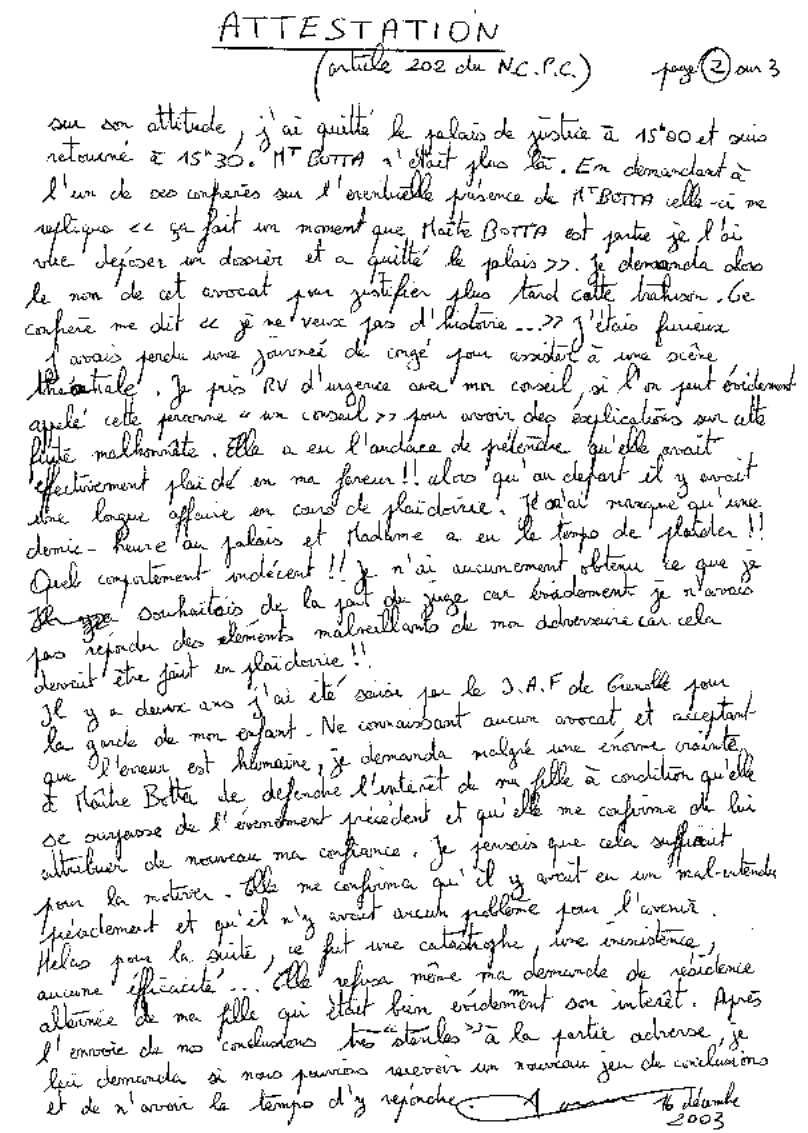 ATTESTATION
(article 202 du N.C.P.C.) page 2 sur 3
sur son attitude, j'ai quitté le palais de justice à 15h00 et suis
retourné à 15h30. MT BOTTA n'était plus là. En demandant à
l'un de ses confrères sur l'eventuelle présence de MT BOTTA celle-ci me
repliqua << ça fait un moment que Maître BOTTA est partie je l'ai
vue déposer un dossier et a quitté le palais >>. Je demanda alors
le nom de cet avocat pour justifier plus tard cette trahison. Ce
confrère me dit << je ne veux pas d'histoire...>> J'étais furieux
j'avais perdu une journeé de congé pour assister à une scène
théatrale. Je pris RV d'urgence avec mon conseil, si l'on peut évidement
appelé cette personne << un conseil >> pour avoir des explications sur cette
fuite malhonnête. Elle a eu l'audace de prétendre qu'elle avait
effectivement plaidé en ma faveur!! alors qu'au départ il y avait
une longue affaire en cours de plaidoirie. Je n'ai manqué qu'une
demie-heure au palais et Madame a eu le temps de plaider!!
Quel comportement indécent!! Je n'ai aucunement obtenu ce que je
souhaitais de la part du juge car évidement je n'avais
pas répondu des elements malveillants de mon adversaire car cela
devait être fait en plaidoirie!!
Il y a deux ans j'ai été saisi par le J.A.F de Grenoble pour
la garde de mon enfant. Ne connaissant aucun avocat et acceptant
que l'erreur est humaine, je demanda malgré une énorme crainte
à Maître Botta de defendre l'intérêt de ma fille à condition qu'elle
se surpasse de l'évenement précédent et qu'elle me confirme de lui
attribuer de nouveau ma confiance. Je pensais que cela suffirait
pour la motiver. Elle me confirma qu'il y avait eu un mal-entendu
précédement et qu'il n'y avait aucun problème pour l'avenir.
Helas pour la suite, ce fut une catastrophe, une inexistence,
aucune éfficacité... Elle refusa même ma demande de résidence
alternée de ma fille qui était bien evidemment son interêt. Après
l'envoie de nos conclusions très "stériles" à la partie adverse, je
lui demanda si nous pouvions recevoir un nouveau jeu de conclusions
et de n'avoir le temps d'y repondre. 16 décembre
2003